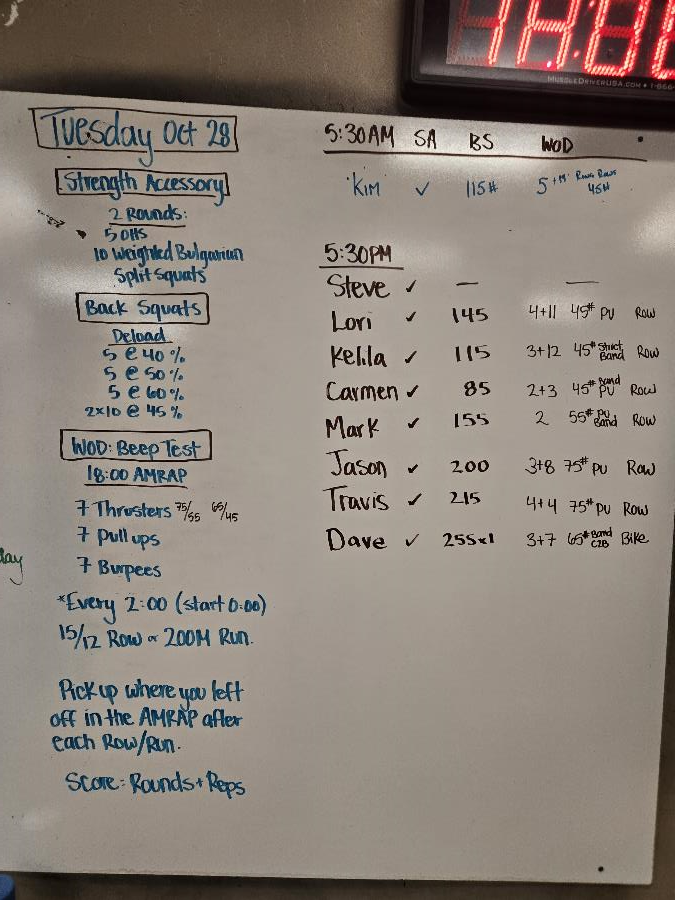 Tuesday Oct 28
Strength Accessory
2 Rounds:
5 OHS
10 Weighted Bulgarian
Split Squats
Back Squats
Deload
5 @ 40%
5 @ 50%
5 @ 60%
2x10 @ 45%
WOD: Beep Test
18:00 AMRAP
7 Thrusters 75/55 65/45
7 Pull ups
7 Burpees
*Every 2:00 (start 0:00)
15/12 Row or 200M Run.
Pick up where you left
off in the AMRAP after
each Row/Run.
Score: Rounds + Reps
day
5:30AM SA BS WOD
Kim ✓ 115# 5 Row 45#
5:30PM
Steve ✓ — —
Lori ✓ 145 4+11 45# PU Row
Kelila ✓ 115 3+12 45# Strict Band Row
Carmen ✓ 85 2+3 45# Band PU Row
Mark ✓ 155 2 55# PU Band Row
Jason ✓ 200 3+8 75# PU Row
Travis ✓ 215 4+4 75# PU Row
Dave ✓ 255x1 3+7 65# Band C2B Bike
MuscleDriverUSA.com • 1-866